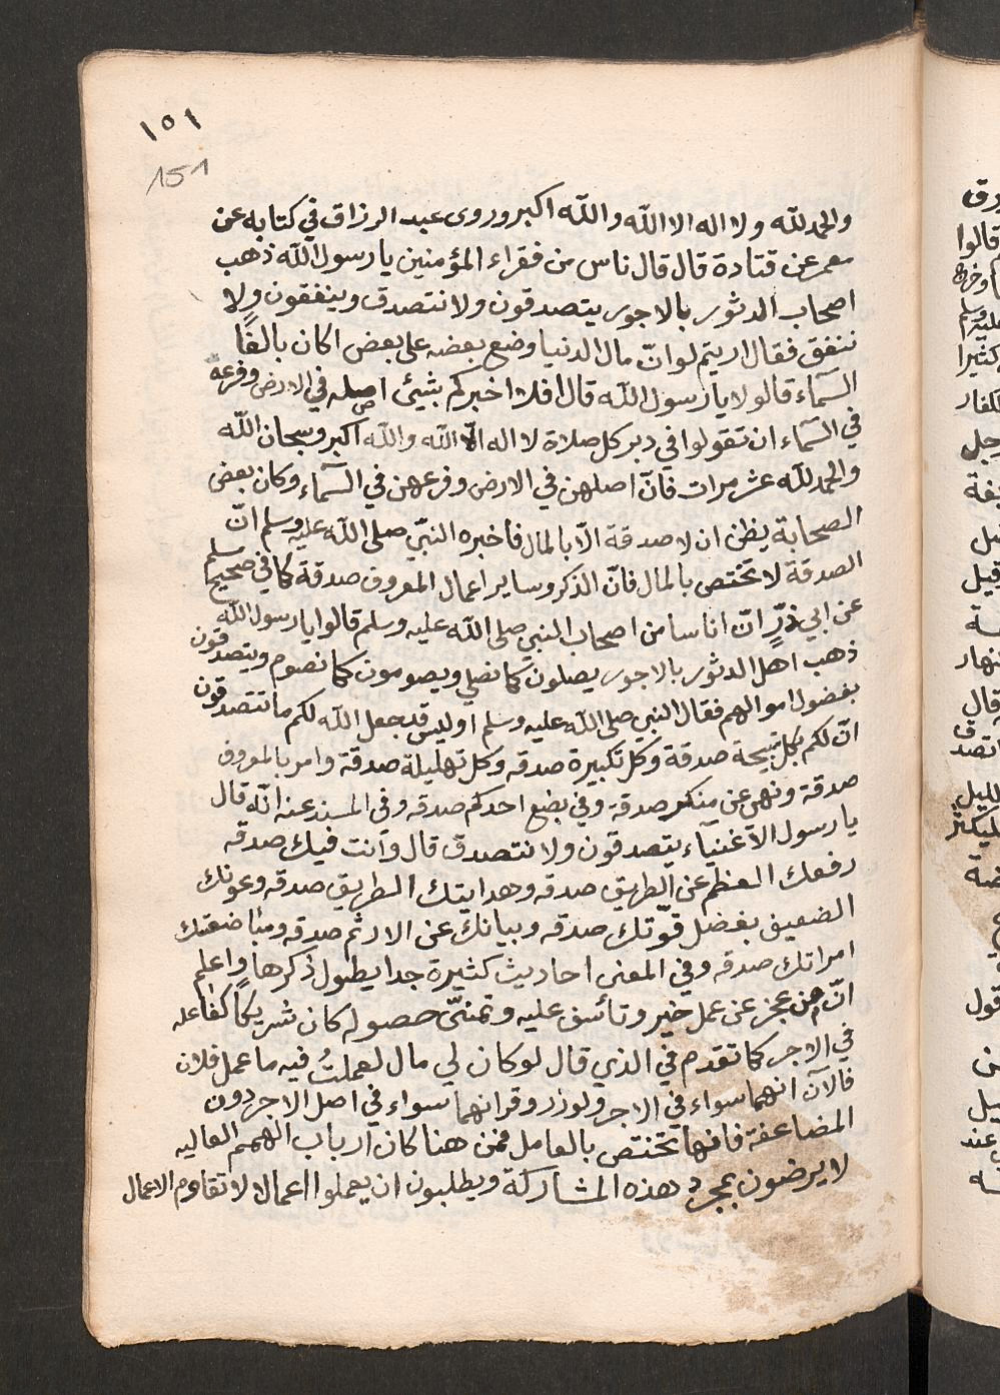 ١٥١
151
والحمد لله ولا اله الا الله والله اكبر وروى عبد الرزاق في كتابه عن
معمر عن قتادة قال قال ناس من فقراء المؤمنين يا رسول الله ذهب
اصحاب الدثور بالاجور يتصدقون ولا نتصدق وينفقون ولا
ننفق فقال اريتم لو انّ مال الدنيا وضع بعضه على بعض اكان بالغًا
السّماء قالو لا يا رسول الله قال افلا اخبركم بشيئ اصله في الارض وفرعه
في السّماء ان تقولوا في دبر كل صلاة لا اله الّا الله والله اكبر وسبحان الله
والحمد لله عشر مرات فانّ اصلهن في الارض وفرعهن في السّماء وكان بعض
الصحابة يظن ان لا صدقة الّا بالمال فاخبره النبّي صلى الله عليه وسلم انّ
الصدقة لا تختص بالمال فانّ الذكر وساير اعمال المعروف صدقة كما في صحيح مسلم
عن ابي ذرٍّ انّ اناسا من اصحاب النبي صلى الله عليه وسلم قالوا يا رسول الله
ذهب اهل الدثور بالاجور يصلون كما نصلي ويصومون كما نصوم ويتصدقون
بفضول اموالهم فقال النبي صلى الله عليه وسلم اوليس قد جعل الله لكم ما تتصدقون
انّ لكم بكل تسبيحة صدقة وكل تكبيرة صدقه وكل تهليلة صدقة وامر بالمعروف
صدقة ونهي عن منكر صدقة وفي بضع احدكم صدقه وفي المسند عنه انّه قال
يا رسول الاغنيآء يتصدقون ولا نتصدق قال وانت فيك صدقه
رفعك العظم عن الطريق صدقه وهدايتك الطريق صدقه وعونك
الضعيف بفضل قوّتك صدقه وبيانك عن الارثم صدقه ومباضعتك
امراتك صدقه وفي المعنى احاديث كثيرة جدا يطول ذكرها واعلم
انّ من عجز عن عمل خير وتأسف عليه وتمنّى حصوله كان شريكًا لفاعله
في الاجر كما تقدم في الذي قال لو كان لي مال لعملتُ فيه ما عمل فلان
فالآن انهما سواء في الاجر ولوزر وقر انهما سواء في اصل الاجر دون
المضاعفة فانها تختص بالعامل فمن هنا كان ارباب الهمم العاليه
لا يرضون بمجرد هذه المشاركة ويطلبون ان يعملوا اعمالا لا تقاوم الاعمال